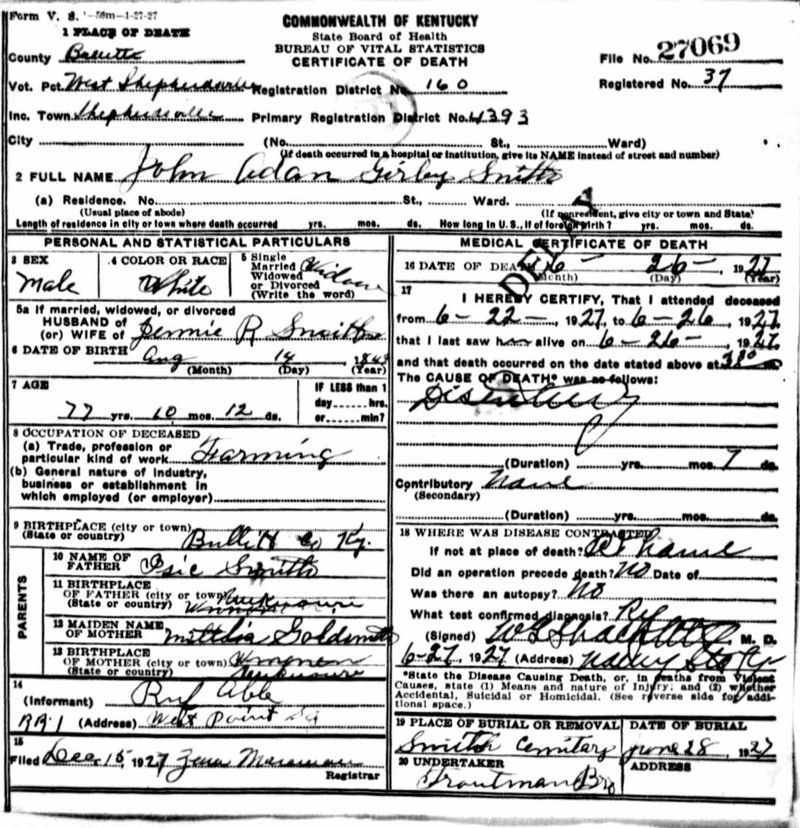 Form V. S. 1-50m-1-27-27
COMMONWEALTH OF KENTUCKY
State Board of Health
BUREAU OF VITAL STATISTICS
CERTIFICATE OF DEATH
1 PLACE OF DEATH
County Bullitt
File No. 27069
Vot. Pct. West Shepherdsville Registration District No. 160
Registered No. 37
Inc. Town Shepherdsville Primary Registration District No. 4393
City (No. St., Ward)
(If death occurred in a hospital or institution, give its NAME instead of street and number)
2 FULL NAME John Adan Girby Smith
(a) Residence. No. St., Ward.
(Usual place of abode) (If nonresident, give city or town and State)
Length of residence in city or town where death occurred yrs. mos. ds. How long in U.S., if of foreign birth? yrs. mos. ds.
DELAY
PERSONAL AND STATISTICAL PARTICULARS
3 SEX
Male
4 COLOR OR RACE
White
5 Single
Married
Widowed
or Divorced
(Write the word)
Widow
5a If married, widowed, or divorced
HUSBAND of
(or) WIFE of Jennie R Smith
6 DATE OF BIRTH Aug 14 1849
(Month) (Day) (Year)
7 AGE
77 yrs. 10 mos. 12 ds.
IF LESS than 1
day hrs.
or min?
8 OCCUPATION OF DECEASED
(a) Trade, profession or
particular kind of work Farming
(b) General nature of industry,
business or establishment in
which employed (or employer)
9 BIRTHPLACE (city or town)
(State or country) Bullitt Co Ky.
PARENTS
10 NAME OF
FATHER Isic Smith
11 BIRTHPLACE
OF FATHER (city or town)
(State or country)
12 MAIDEN NAME
OF MOTHER Goldsmith
13 BIRTHPLACE
OF MOTHER (city or town)
(State or country)
14
(Informant) Ruf Able
RR1 (Address) West Point
15
Filed Dec 15 1927
Registrar
MEDICAL CERTIFICATE OF DEATH
16 DATE OF DEATH 6- 26- , 1927
(Month) (Day) (Year)
17
I HEREBY CERTIFY, That I attended deceased
from 6-22-, 1927, to 6-26, 1927,
that I last saw h alive on 6-26-, 1927,
and that death occurred on the date stated above at
The CAUSE OF DEATH* was as follows:
Disentery
(Duration) yrs. mos. 7 ds.
Contributory None
(Secondary)
(Duration) yrs. mos. ds.
18 WHERE WAS DISEASE CONTRACTED
If not at place of death? At home
Did an operation precede death? No Date of
Was there an autopsy? No
What test confirmed diagnosis?
(Signed) M. D.
6-27, 1927 (Address)
*State the Disease Causing Death, or, in deaths from Violent
Causes, state (1) Means and nature of Injury; and (2) whether
Accidental, Suicidal or Homicidal. (See reverse side for addi-
tional space.)
19 PLACE OF BURIAL OR REMOVAL
Smith Cemitary
DATE OF BURIAL
June 28, 1927
20 UNDERTAKER
Troutman Bro
ADDRESS